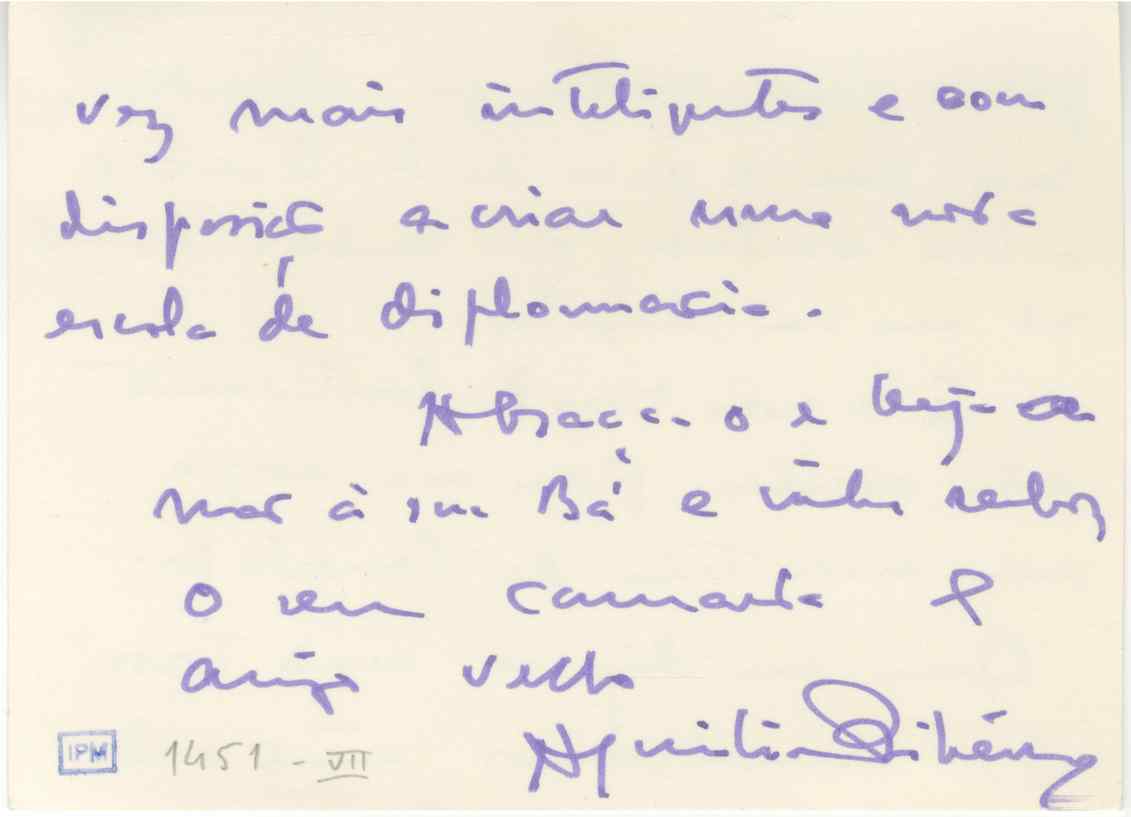 vez mais inteligentes e com
disposição a criar uma nova
escola de diplomacia.
Abraça-o e beija a
mão à sua Bá e
o seu camarada e
amigo velho
Aquilino Ribeiro
IPM 1451 - VII